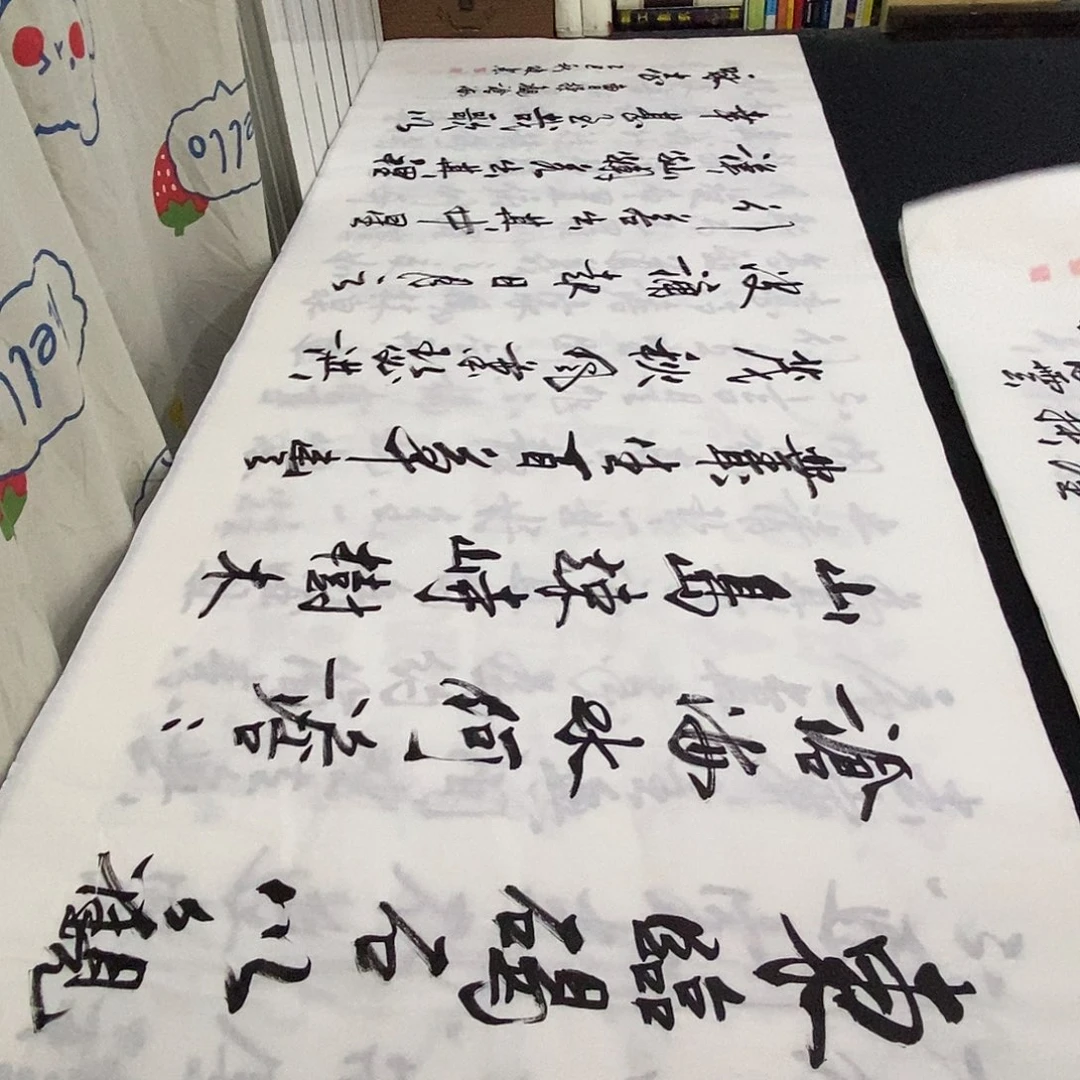 東臨碣石以觀
滄海水何澹〻
山島竦峙樹木
叢生百草豐
茂秋風蕭瑟洪
波湧起日月之
行若出其中星
漢燦爛若出其裡
幸甚至哉歌以
詠志